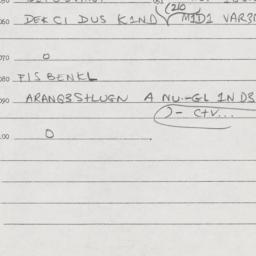 060 DEKCI DUS KIND (210 MIDI VAR3
070 O
080 FIS BENKL
090 ARANG3S+LUGN A NU.-GL IND3
)- C+V...
100 O